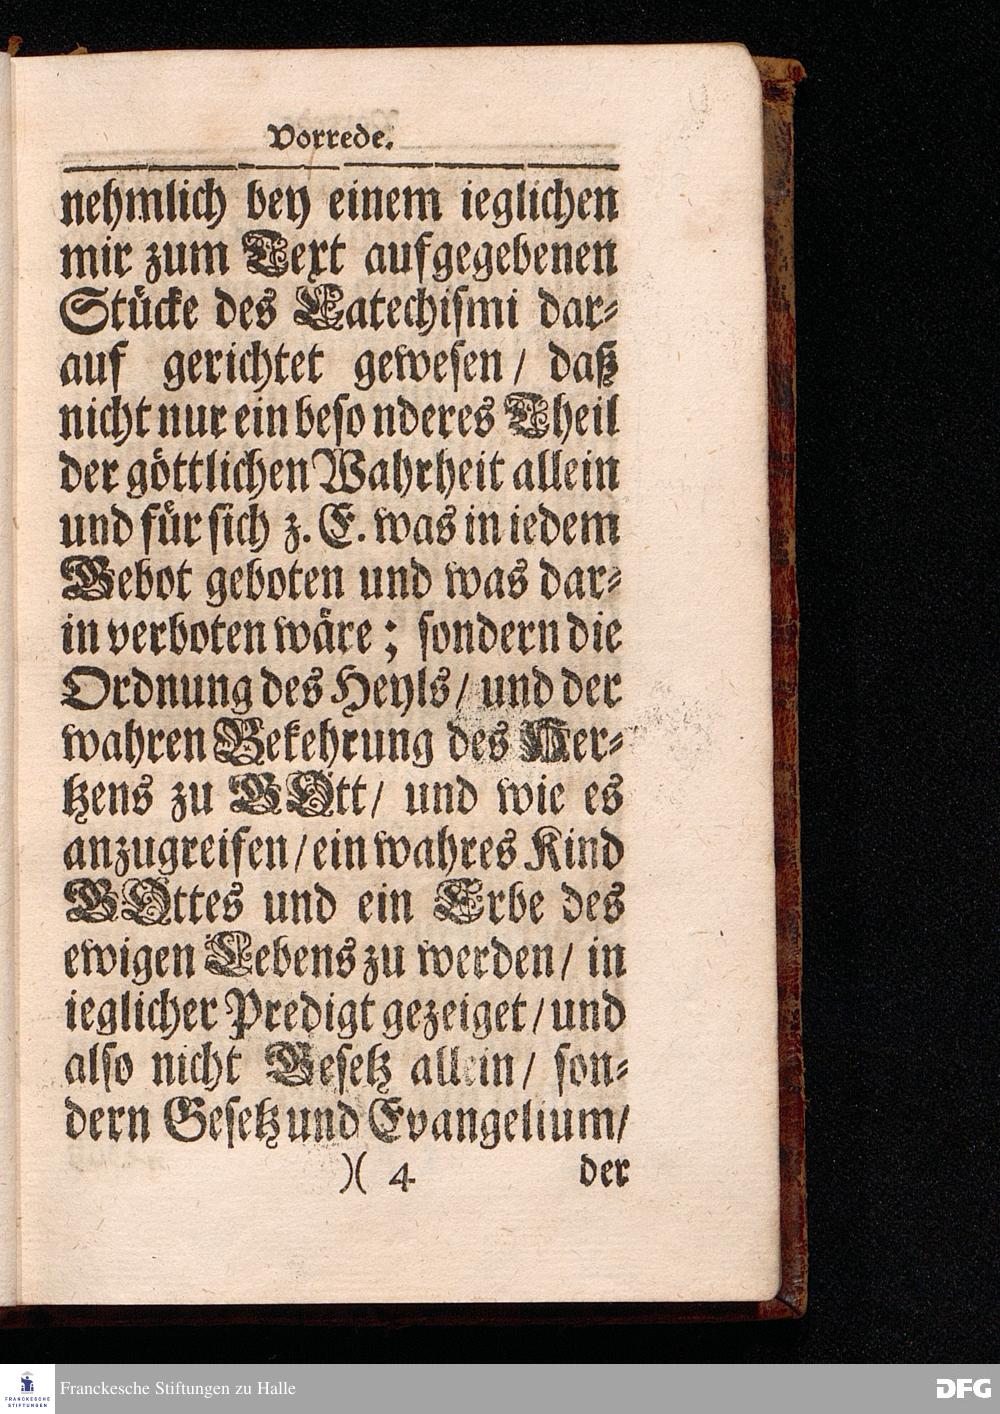 Vorrede.
nehmlich bey einem ieglichen
mir zum Text aufgegebenen
Stücke des Catechismi dar-
auf gerichtet gewesen / daß
nicht nur ein beso nderes Theil
der göttlichen Wahrheit allein
und für sich z. E. was in iedem
Gebot geboten und was dar-
in verboten wäre; sondern die
Ordnung des Heyls / und der
wahren Bekehrung des Her-
tzens zu GOtt / und wie es
anzugreifen / ein wahres Kind
GOttes und ein Erbe des
ewigen Lebens zu werden / in
ieglicher Predigt gezeiget / und
also nicht Gesetz allein / son-
dern Gesetz und Evangelium /
)( 4 der
FRANCKESCHE
STIFTUNGEN
Franckesche Stiftungen zu Halle
DFG